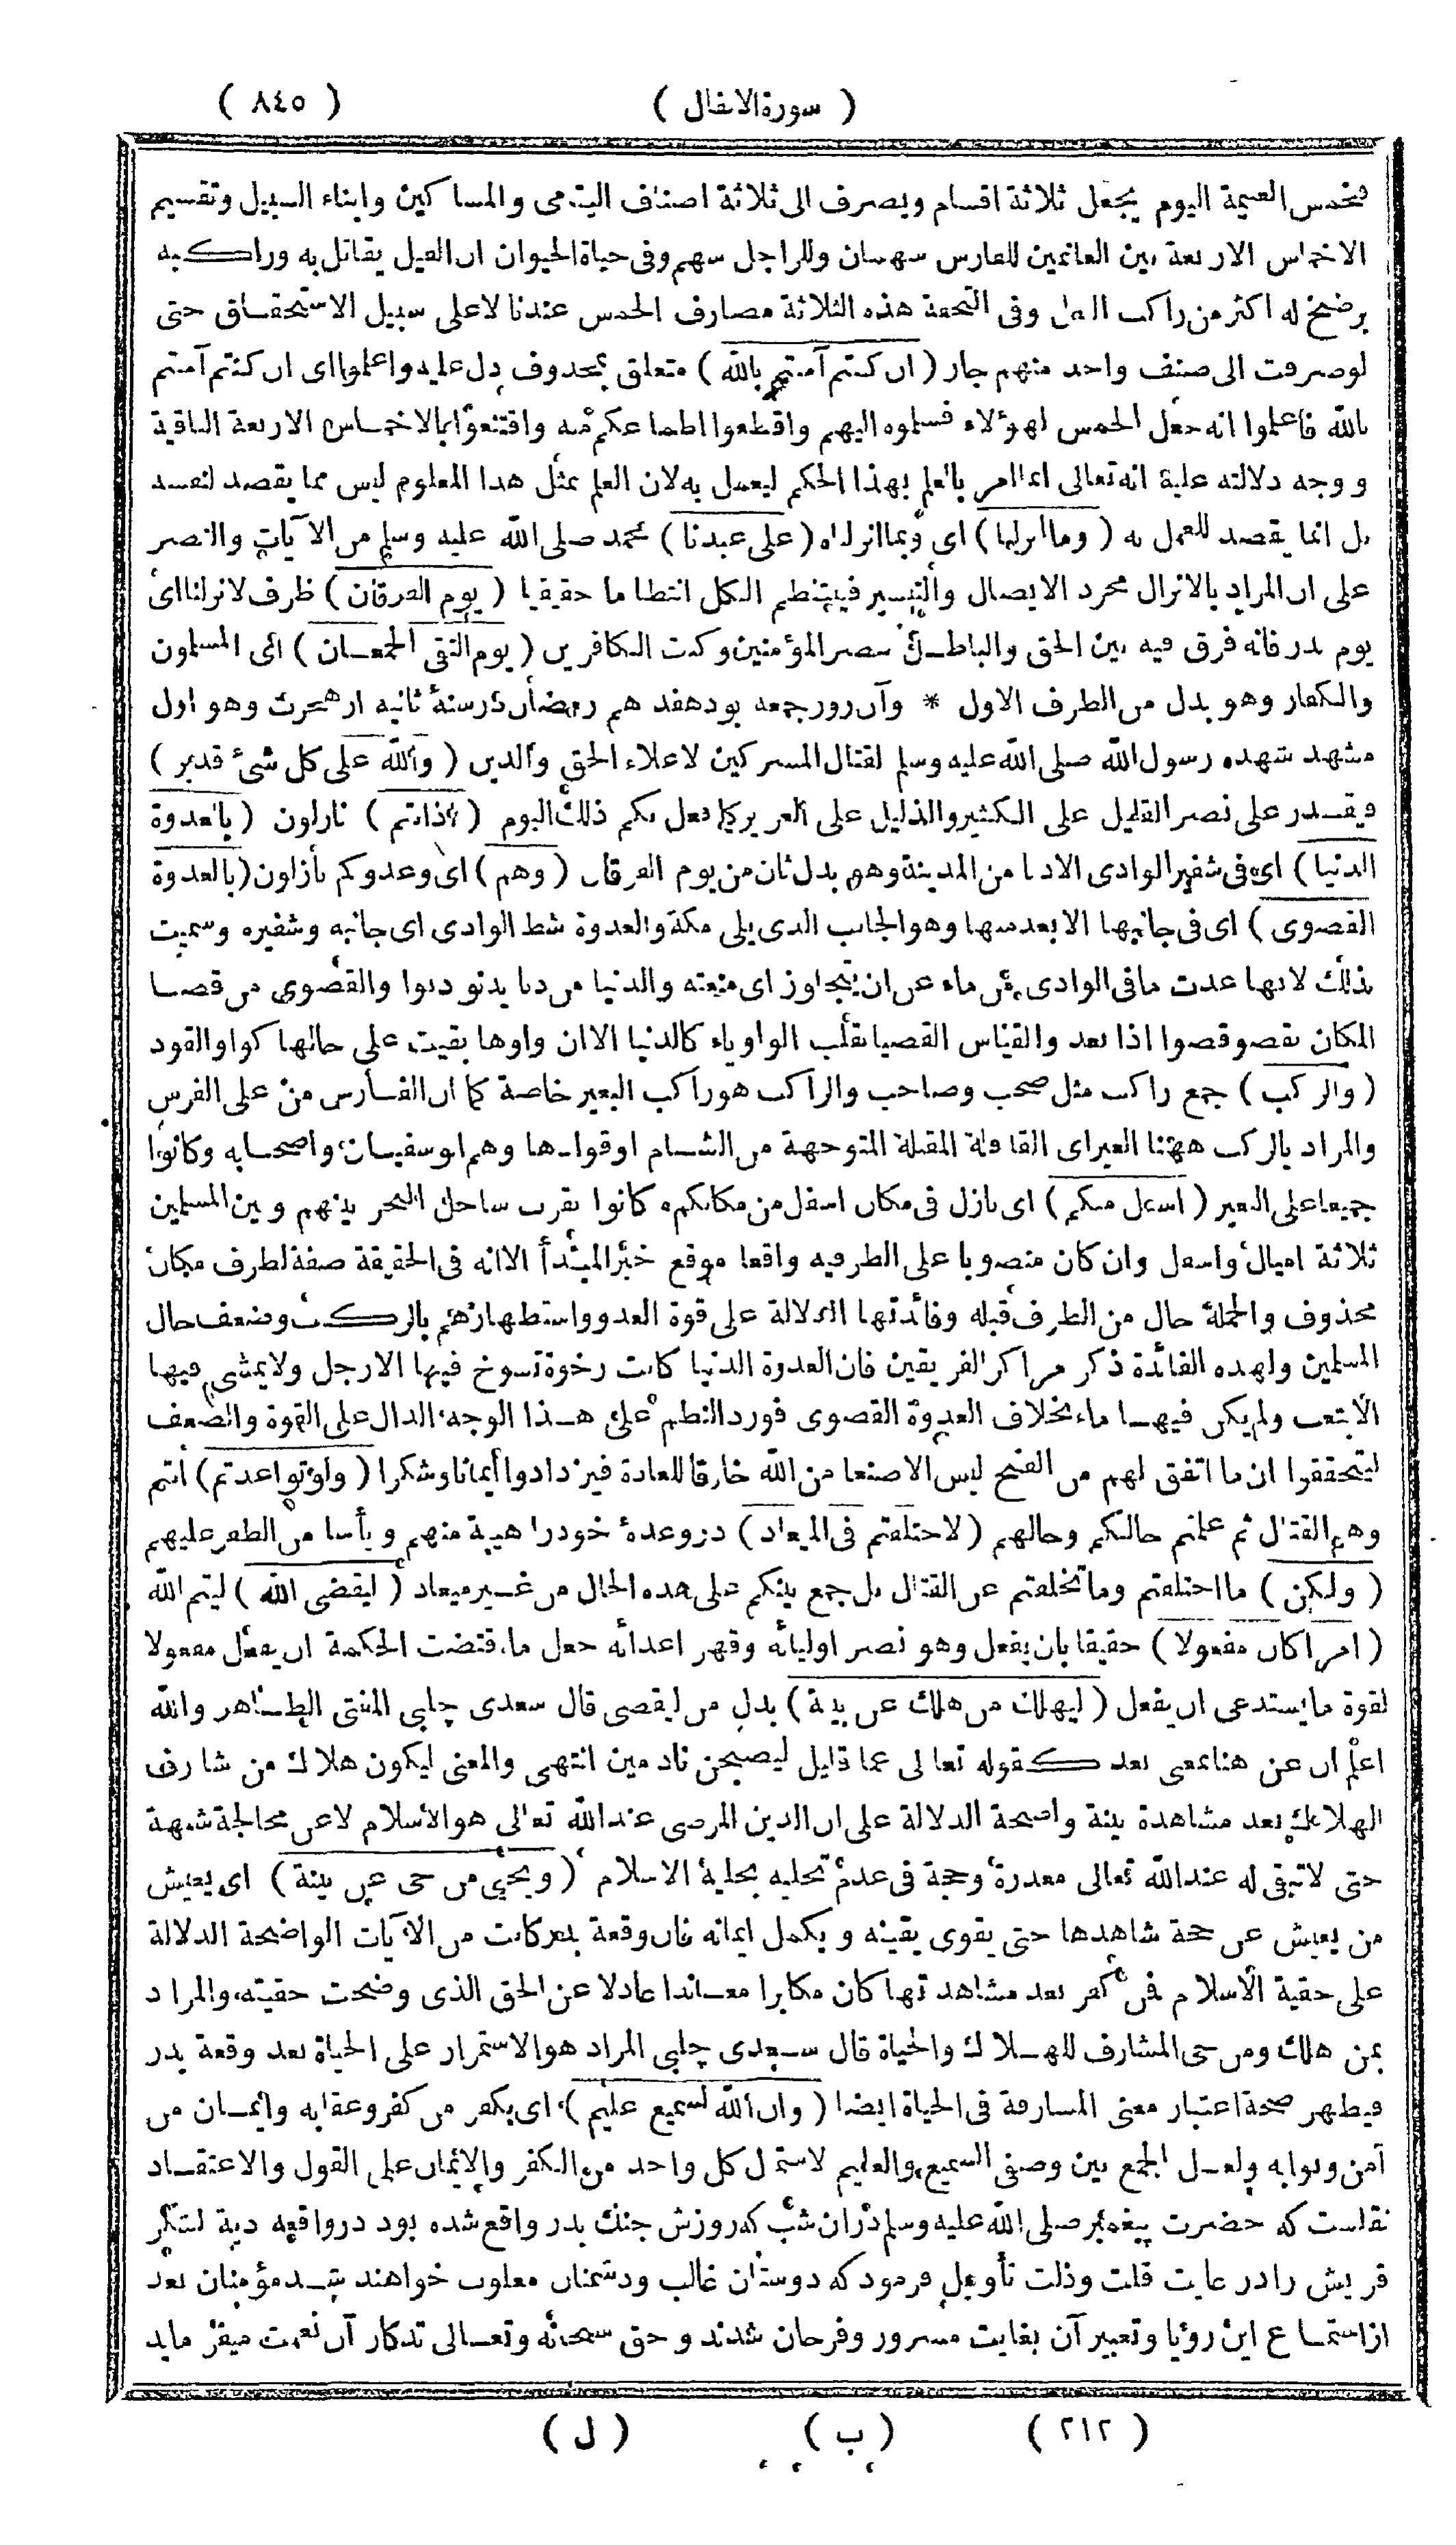 ( سورة الانفال ) ( ٨٤٥ )
فخمس الغنيمة اليوم يجعل ثلاثة اقسام ويصرف الى ثلاثة اصناف اليتامى والمساكين وابناء السبيل وتقسيم
الاخماس الاربعة بين الغانمين للفارس سهمان وللراجل سهم وفى حياة الحيوان ان الفيل يقاتل به وراكبه
يرضخ له اكثر من راكب البغل وفى التحفة هذه الثلاثة مصارف الخمس عندنا لا على سبيل الاستحقاق حتى
لو صرفت الى صنف واحد منهم جاز ( ان كنتم آمنتم بالله ) متعلق بمحذوف دل عليه واعلموا اى ان كنتم آمنتم
بالله فاعلموا انه جعل الخمس لهؤلاء فسلموه اليهم واقطعوا اطماعكم منه واقتنعوا بالاخماس الاربعة الباقية
ووجه دلالته عليه انه تعالى انما امر بالعلم بهذا الحكم ليعمل به لان العلم بمثل هذا المعلوم ليس مما يقصد لنفسه
بل انما يقصد للعمل به ( وما انزلنا ) اى وبما انزلناه ( على عبدنا ) محمد صلى الله عليه وسلم من الآيات والنصر
على ان المراد بالانزال مجرد الايصال والتيسير فينتظم الكل انتظاما حقيقيا ( يوم الفرقان ) ظرف لانزلنا اى
يوم بدر فانه فرق فيه بين الحق والباطل بنصر المؤمنين وكبت الكافرين ( يوم التقى الجمعان ) اى المسلمون
والكفار وهو بدل من الظرف الاول * وآن روز جمعه بود هفدهم رمضان در سنهٔ ثانيه از هجرت وهو اول
مشهد شهده رسول الله صلى الله عليه وسلم لقتال المشركين لاعلاء الحق والدين ( والله على كل شئ قدير )
فيقدر على نصر القليل على الكثير والذليل على العزيز كما فعل بكم ذلك اليوم ( اذ انتم ) نازلون ( بالعدوة
الدنيا ) اى فى شفير الوادى الادنى من المدينة وهو بدل ثان من يوم الفرقان ( وهم ) اى وعدوكم نازلون ( بالعدوة
القصوى ) اى فى جانبها الابعد منها وهو الجانب الذى يلى مكة والعدوة شط الوادى اى جانبه وشفيره وسميت
بذلك لانها عدت ما فى الوادى من ماء عن ان يتجاوز اى منعته والدنيا من دنا يدنو دنوا والقصوى من قصا
المكان يقصو قصوا اذا بعد والقياس القصيا بقلب الواو ياء كالدنيا الا ان واوها بقيت على حالها كواو القود
( والركب ) جمع راكب مثل صحب وصاحب والراكب هو راكب البعير خاصة كما ان الفارس من على الفرس
والمراد بالركب ههنا العير اى القافلة المقبلة المتوجهة من الشام او قوادها وهم ابو سفيان واصحابه وكانوا
جميعا على البعير ( اسفل منكم ) اى نازل فى مكان اسفل من مكانكم كانوا بقرب ساحل البحر بينهم وبين المسلمين
ثلاثة اميال واسفل وان كان منصوبا على الظرفيه واقعا موقع خبر المبتدأ الا انه فى الحقيقة صفة لظرف مكان
محذوف والجملة حال من الظرف قبله وفائدتها الدلالة على قوة العدو واستظهارهم بالركب وضعف حال
المسلمين ولهذه الفائدة ذكر مراكز الفريقين فان العدوة الدنيا كانت رخوة تسوخ فيها الارجل ولا يمشى فيها
الا بتعب ولم يكن فيها ماء بخلاف العدوة القصوى فورد النظم على هذا الوجه الدال على القوة والضعف
ليتحققوا ان ما اتفق لهم من الفتح ليس الا صنعا من الله خارقا للعادة فيزدادوا ايمانا وشكرا ( ولو تواعدتم ) انتم
وهم القتال ثم علمتم حالكم وحالهم ( لاختلفتم فى الميعاد ) در وعدهٔ خود را هيبة منهم ويأسا من الظفر عليهم
( ولكن ) ما اختلفتم وما تخلفتم عن القتال بل جمع بينكم على هذه الحال من غير ميعاد ( ليقضى الله ) ليتم الله
( امرا كان مفعولا ) حقيقا بان يفعل وهو نصر اوليائه وقهر اعدائه جعل ما اقتضت الحكمة ان يفعل مفعولا
لقوة ما يستدعى ان يفعل ( ليهلك من هلك عن بينة ) بدل من ليقضى قال سعدى چلبى المفتى الظاهر والله
اعلم ان عن هنا بمعنى بعد كقوله تعالى عما قليل ليصبحن نادمين انتهى والمعنى ليكون هلاك من شارف
الهلاك بعد مشاهدة بينة واضحة الدلالة على ان الدين المرضى عند الله تعالى هو الاسلام لا عن مخالجة شبهة
حتى لا تبقى له عند الله تعالى معذرة وحجة فى عدم تحليه بحلية الاسلام ( ويحيى من حى عن بينة ) اى يعيش
من يعيش عن حجة شاهدها حتى يقوى يقينه ويكمل ايمانه فان وقعة بدر كانت من الآيات الواضحة الدلالة
على حقية الاسلام فمن كفر بعد مشاهدتها كان مكابرا معاندا عادلا عن الحق الذى وضحت حقيته والمراد
بمن هلك ومن حى المشارف للهلاك والحياة قال سعدى چلبى المراد هو الاستمرار على الحياة بعد وقعة بدر
فيظهر صحة اعتبار معنى المشارفة فى الحياة ايضا ( وان الله لسميع عليم ) اى بكفر من كفر وعقابه وايمان من
آمن وثوابه ولعل الجمع بين وصفى السميع والعليم لاشتمال كل واحد من الكفر والايمان على القول والاعتقاد
نقلست كه حضرت پيغمبر صلى الله عليه وسلم دران شب كه روزش جنك بدر واقع شده بود در واقعه ديد لشكر
قريش را در غايت قلت وذلت تأويل فرمود كه دوستان غالب ودشمنان مغلوب خواهند شد مؤمنان بعد
از استماع اين رؤيا وتعبير آن بغايت مسرور وفرحان شدند وحق سبحانه وتعالى تذكار آن نعمت ميفرمايد
( ٢١٢ ) ( ب ) ( ل )